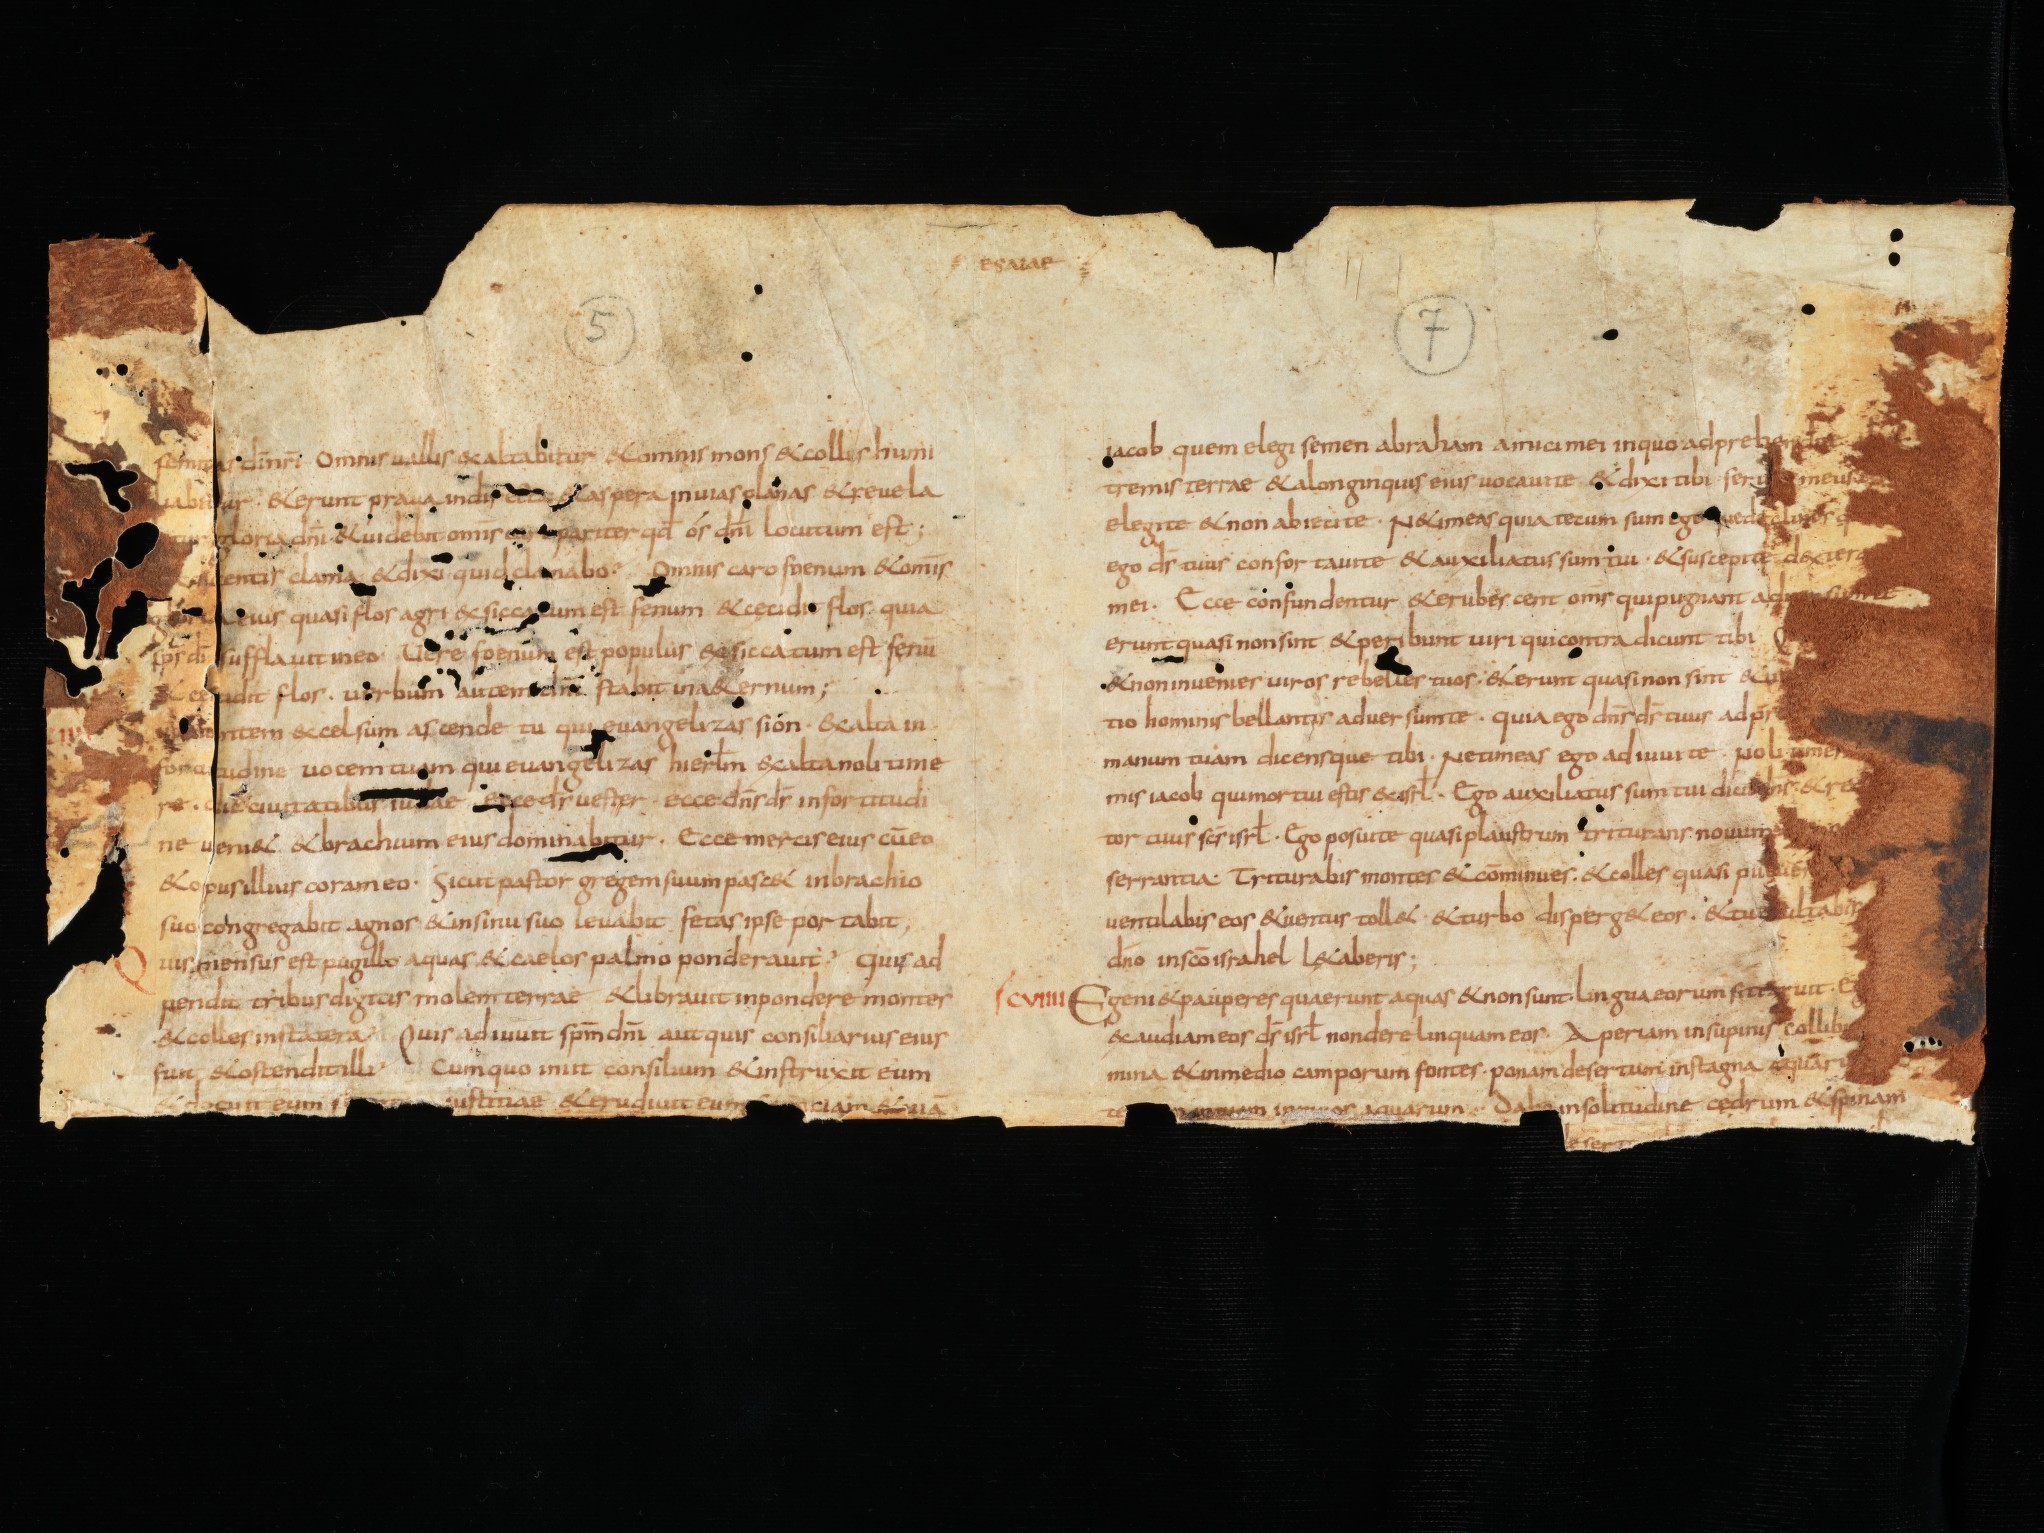 esaiae
5
semitas dn̄i nr̄i Omnis uallis exaltabitur & omnis mons & collis humi
liabitur · & erunt praua in directa & aspera in uias planas & reuela
bitur gloria dn̄i · & uidebit omīs caro pariter qd̄ ós dn̄i locutum est ;
dicentis clama & dixi quid clamabo ? Omnis caro foenum & omīs
gloria eius quasi flos agri exsiccatum est fenum & cecidit flos quia
sp̄s dn̄i sufflauit in eo · Uere foenum est populus exsiccatum est fenū
& cecidit flos · uerbum autem dn̄i stabit in aeternum ;
montem excelsum ascende tu qui euangelizas sion · exalta in
fortitudine uocem tuam qui euangelizas hierl̄m exalta noli time
re · dic ciuitatibus iudae ecce ds̄ uester · ecce dn̄s ds̄ in fortitudi
ne ueni& & brachium eius dominabitur · Ecce mercis eius cū eo
& opus illius coram eo · Sicut pastor gregem suum pasc& in brachio
suo congregabit agnos & in sinu suo leuabit fetas ipse portabit ,
Quis mensus est pugillo aquas & caelos palmo ponderauit ? Quis ad
pendit tribus digitis molem terrae & librauit in pondere montes
& colles in statera ? Quis adiuuit sp̄m dn̄i aut quis consiliarius eius
fuit & ostendit illi ? Cum quo iniit consilium & instruxit eum
& docuit eum iustitiae & erudiuit eum & uiā
7
iacob quem elegi semen abraham amici mei in quo adprehendi te
tremis terrae & a longinquis eius uocaui te & dixi tibi seruus meus
elegi te & non abieci te · N& imeas quia tecum sum ego ne declines
ego ds̄ tuus confortaui te & auxiliatus sum tui · & suscepit te dextera
mei · Ecce confundentur & erubescent omīs qui pugnant aduersum te
erunt quasi non sint & peribunt uiri qui contradicunt tibi
& non inuenies uiros rebelles tuos · & erunt quasi non sint &
tio hominis bellantis aduersum te · quia ego dn̄s ds̄ tuus
manum tuam dicensque tibi · Ne timeas ego adiuui te · Noli timere
mis iacob qui mortui estis ex isrl̄ · Ego auxiliatus sum tui dicit dn̄s ·
tor tuus sc̄s isrl̄ · Ego posui te quasi plaustrum triturans nouum
serrantia · Triturabis montes & cōminues · & colles quasi puluerem
uentilabis eos & uentus toll& · & turbo disperg& eos · & tu exultabis
dn̄o in sc̄o israhel l&aberis ;
scviiii Egeni & pauperes quaerunt aquas & non sunt · lingua eorum siti aruit ·
exaudiam eos ds̄ isrl̄ non derelinquam eos · Aperiam in supinis collibus
mina & in medio camporum fontes · ponam desertum in stagna aquarū
aquarum · Dabo in solitudine cedrum & spinam